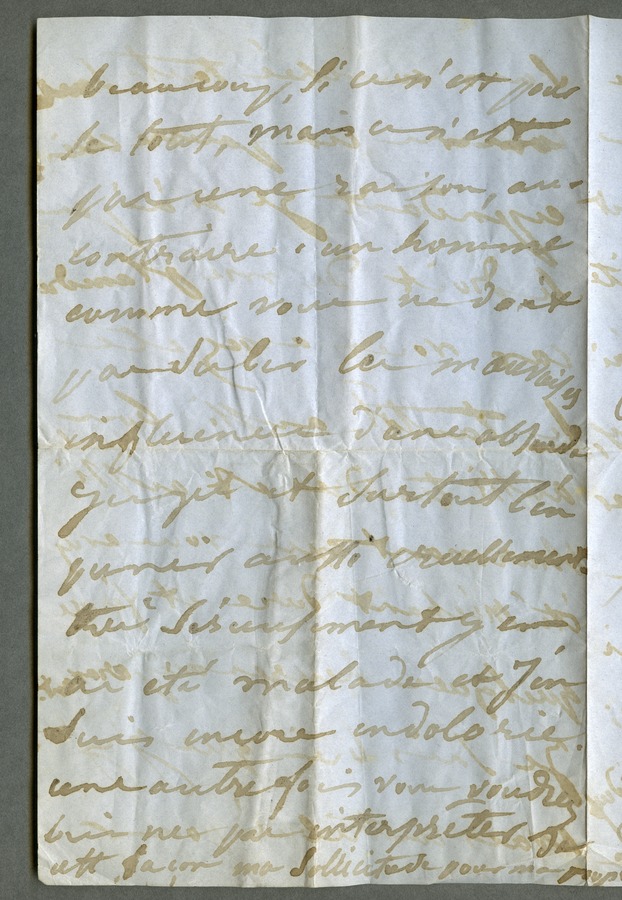 beaucoup, si ce n'est pas
le tout, mais ce n'est
pas une raison, au-
contraire. un homme
comme vous ne doit
pas subir les mauvaises
influences d'une absurde
et surtout l'en
punir aussi cruellement
très sérieusement j'en
ai été malade et j'en
suis encore endolorie.
une autre fois vous voudrez
bien ne pas interpréter de
cette façon ma sollicitude pour ma